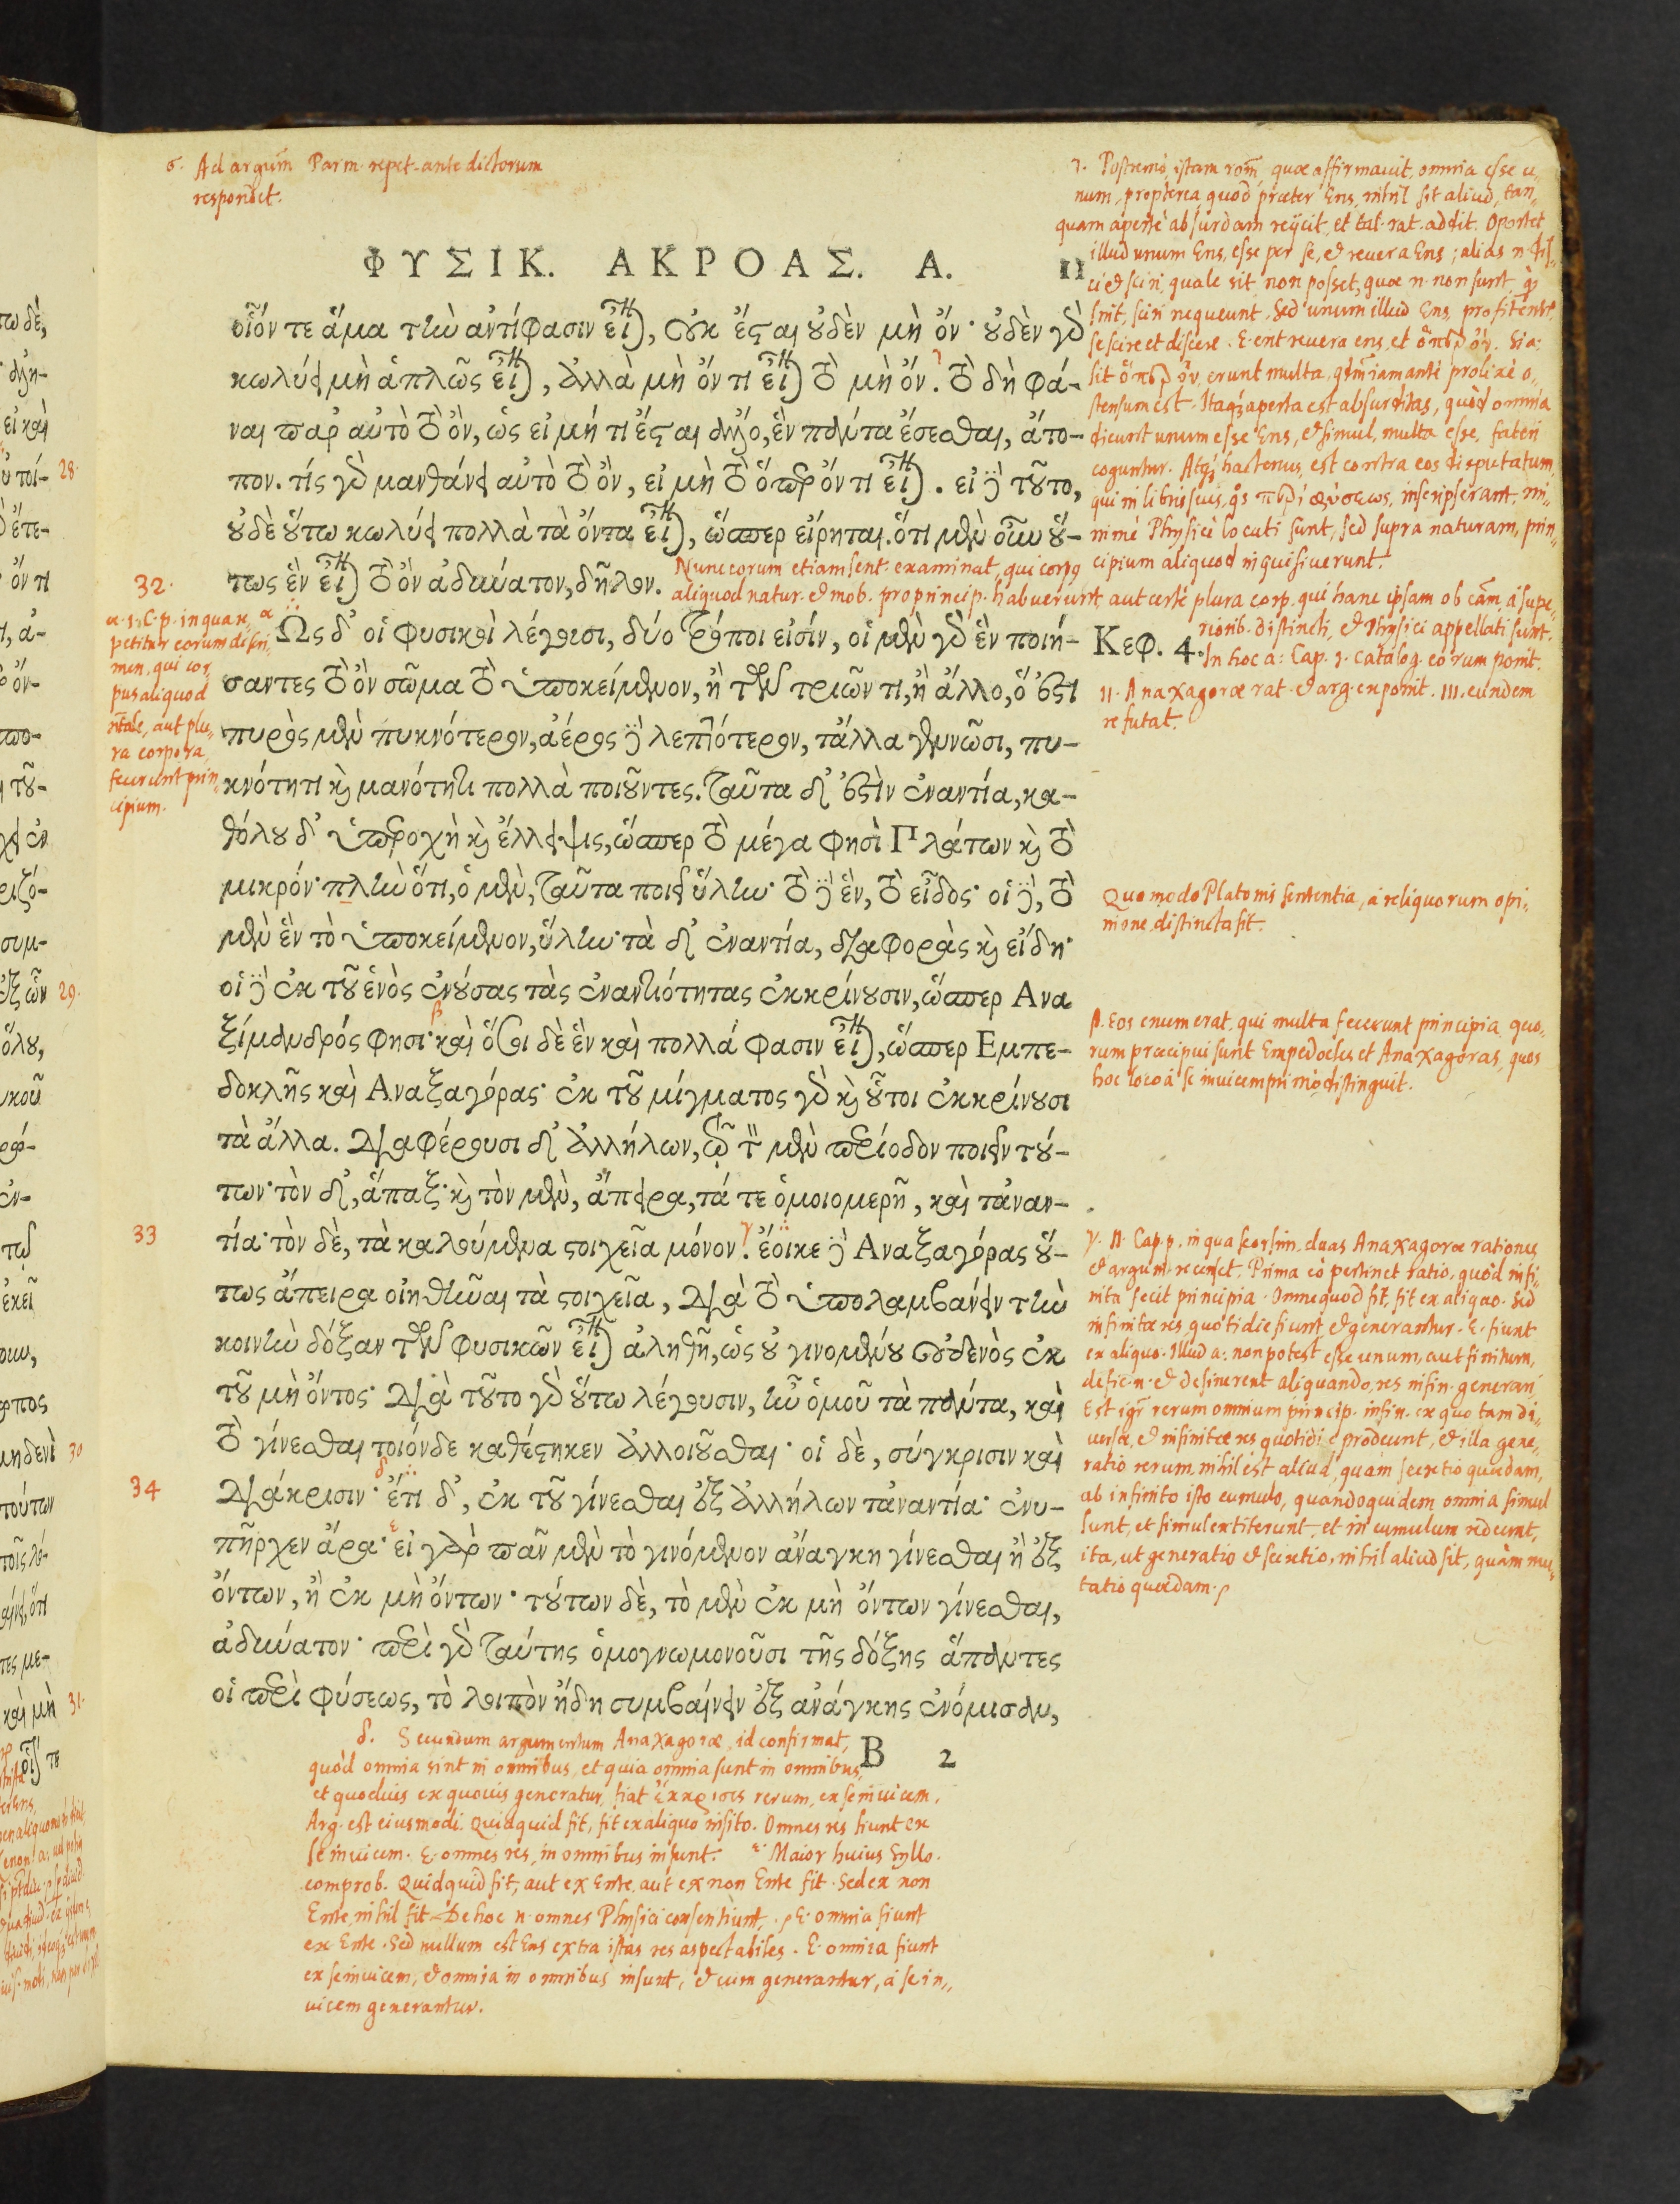 ς. Ad argum̃ Parm. repet. ante dictorum
respondet.
ΦΥΣΙΚ. ΑΚΡΟΑΣ. Α. 11
οἷόν τε ἅμα τὴν ἀντίφασιν εἶναι, οὐκ ἔσται οὐδὲν μὴ ὄν· οὐδὲν γὰρ
κωλύει μὴ ἁπλῶς εἶναι, ἀλλὰ μὴ ὄν τι εἶναι τὸ μὴ ὄν. τὸ δὴ φά-
ναι παρ' αὐτὸ τὸ ὄν, ὡς εἰ μή τι ἔσται ἄλλο, ἓν πάντα ἔσεσθαι, ἄτο-
πον. τίς γὰρ μανθάνει αὐτὸ τὸ ὄν, εἰ μὴ τὸ ὅπερ ὄν τι εἶναι. εἰ δὲ τοῦτο,
οὐδὲ οὕτω κωλύει πολλὰ τὰ ὄντα εἶναι, ὥσπερ εἴρηται. ὅτι μὲν οὖν οὕ-
τως ἓν εἶναι τὸ ὂν ἀδύνατον, δῆλον.
Nunc eorum etiam sent. examinat, qui corpꝰ
aliquod natur. et mob. pro princip. habuerunt, aut certe plura corp. qui hanc ipsam ob cãm, a supe-
riorib. distincti, et Physici appellati sunt.
In hoc a: Cap. 1. catalog. eorum ponit.
11. Anaxagoræ rat. et arg. exponit. 111. eundem
refutat.
32.
α. 1. C. p. in qua ex,
petitur eorum discri-
men, qui cor-
pus aliquod
aut plu-
ra corpora
fecerunt prin-
cipium.
Κεφ. 4.
Ὡς δ' οἱ φυσικοὶ λέγουσι, δύο τρόποι εἰσίν, οἱ μὲν γὰρ ἓν ποιή-
σαντες τὸ ὂν σῶμα τὸ ὑποκείμενον, ἢ τῶν τριῶν τι, ἢ ἄλλο, ὅ ἐστι
πυρὸς μὲν πυκνότερον, ἀέρος δὲ λεπτότερον, τἄλλα γεννῶσι, πυ-
κνότητι καὶ μανότητι πολλὰ ποιοῦντες. ταῦτα δ' ἐστὶν ἐναντία, κα-
θόλου δ' ὑπεροχὴ καὶ ἔλλειψις, ὥσπερ τὸ μέγα φησὶ Πλάτων καὶ τὸ
μικρόν· πλὴν ὅτι, ὁ μὲν, ταῦτα ποιεῖ ὕλην· τὸ δὲ ἓν, τὸ εἶδος· οἱ δὲ, τὸ
μὲν ἓν τὸ ὑποκείμενον, ὕλην· τὰ δ' ἐναντία, διαφορὰς καὶ εἴδη·
οἱ δὲ ἐκ τοῦ ἑνὸς ἐνούσας τὰς ἐναντιότητας ἐκκρίνουσιν, ὥσπερ Ανα
ξίμανδρός φησι· καὶ ὅσοι δὲ ἓν καὶ πολλά φασιν εἶναι, ὥσπερ Εμπε-
δοκλῆς καὶ Αναξαγόρας· ἐκ τοῦ μίγματος γὰρ καὶ οὗτοι ἐκκρίνουσι
τὰ ἄλλα. Διαφέρουσι δ' ἀλλήλων, τῷ τὸν μὲν περίοδον ποιεῖν τού-
των· τὸν δ', ἅπαξ· καὶ τὸν μὲν, ἄπειρα, τά τε ὁμοιομερῆ, καὶ τἀναν-
33
τία· τὸν δὲ, τὰ καλούμενα στοιχεῖα μόνον. ἔοικε δὲ Αναξαγόρας οὕ-
τως ἄπειρα οἰηθῆναι τὰ στοιχεῖα, διὰ τὸ ὑπολαμβάνειν τὴν
κοινὴν δόξαν τῶν φυσικῶν εἶναι ἀληθῆ, ὡς οὐ γινομένου οὐδενὸς ἐκ
τοῦ μὴ ὄντος· διὰ τοῦτο γὰρ οὕτω λέγουσιν, ἦν ὁμοῦ τὰ πάντα, καὶ
τὸ γίνεσθαι τοιόνδε καθέστηκεν ἀλλοιοῦσθαι· οἱ δὲ, σύγκρισιν καὶ
34
διάκρισιν· ἔτι δ', ἐκ τοῦ γίνεσθαι ἐξ ἀλλήλων τἀναντία· ἐνυ-
πῆρχεν ἄρα· εἰ γὰρ πᾶν μὲν τὸ γινόμενον ἀνάγκη γίνεσθαι ἢ ἐξ
ὄντων, ἢ ἐκ μὴ ὄντων· τούτων δὲ, τὸ μὲν ἐκ μὴ ὄντων γίνεσθαι,
ἀδύνατον· περὶ γὰρ ταύτης ὁμογνωμονοῦσι τῆς δόξης ἅπαντες
οἱ περὶ φύσεως, τὸ λοιπὸν ἤδη συμβαίνειν ἐξ ἀνάγκης ἐνόμισαν,
B 2
7. Postremò, istam rom̃ quæ affirmauit, omnia esse u-
num, propterea quòd præter Ens, nihil sit aliud, tan-
quam apertè absurdam reijcit, et tal. rat. addit. Oportet
illud unum Ens, esse per se, et reuera Ens; alias n. dis-
ci et sciri, quale sit non posset, quæ n. non sunt,
sint, sciri nequeunt. Sed unum illud Ens, profitentur
se scire et discere. E. ent reuera ens, et ὅπερ ὄν. Si a:
sit ὅπερ ὄν, erunt multa, iam antè prolixè o-
stensum est. Itaq; aperta est absurditas, quòd omnia
dicunt unum esse Ens, et simul, multa esse, fateri
coguntur. Atq; hactenus, est contra eos disputatum,
qui in libris suis, περὶ φύσεως, inscripserant, mi-
nimè Physicè locuti sunt, sed supra naturam, prin-
cipium aliquod inquisiuerunt.
Quomodo Platonis sententia, a reliquorum opi-
nione, distincta sit.
β. Eos enumerat, qui multa fecerunt principia, quo-
rum præcipui sunt Empedocles et Anaxagoras, quos
hoc loco à se inuicem primò distinguit.
γ. 11. Cap. p. in qua seorsim duas Anaxagoræ rationes
et argum. recenset. Prima eò pertinet ratio, quòd infi-
nita fecit principia. Omne quod fit, fit ex aliquo. Sed
infinitæ res, quotidie fiunt et generantur. E. fiunt
ex aliquo. Illud a: non potest esse unum, aut finitum,
defic. n. et desinerent aliquando, res infin. generari.
Est igr̃ rerum omnium princip. infin. ex quo tam di-
uersæ, et infinitæ res quotidie prodeunt, et illa gene-
ratio rerum, nihil est aliud, quàm secretio quædam,
ab infinito isto cumulo, quandoquidem omnia simul
sunt, et simul extiterunt, et in cumulum redeunt,
ita, ut generatio et secretio, nihil aliud sit, quàm mu-
tatio quædam.
δ. Secundum argumentum Anaxagoræ, id confirmat,
quòd omnia sint in omnibus, et quia omnia sunt in omnibus,
et quoduis ex quouis generatur, fiat ἔκκρισις rerum, ex se inuicem.
Arg. est eiusmodi. Quidquid fit, fit ex aliquo insito. Omnes res fiunt ex
se inuicem. E. omnes res, in omnibus insunt. ε. Maior huius Syllo.
comprob. Quidquid fit, aut ex Ente, aut ex non Ente fit. Sed ex non
Ente, nihil fit. De hoc n. omnes Physici consentiunt. E. omnia fiunt
ex Ente. Sed nullum est Ens extra istas res aspectabiles. E. omnia fiunt
ex se inuicem, et omnia in omnibus insunt, et cum generantur, à se in-
uicem generantur.